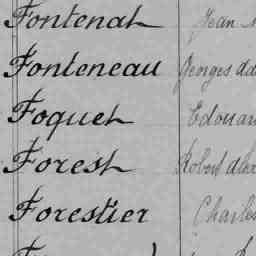 Fontenat Jean
Fonteneau Georges
Foquet Edouard
Forest Robert
Forestier Charles